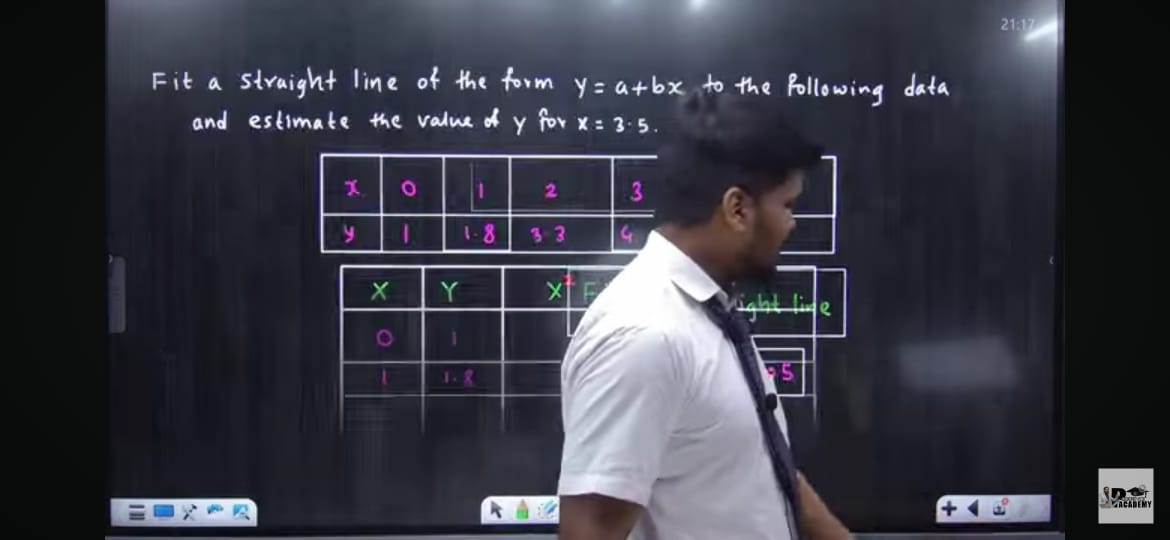 21:17
Fit a straight line of the form y = a+bx to the following data
and estimate the value of y for x = 3.5.
x 0 1 2 3
y 1 1.8 3.3 4.
X Y X² F ight line
0 1
1 1.8 .5
ACADEMY